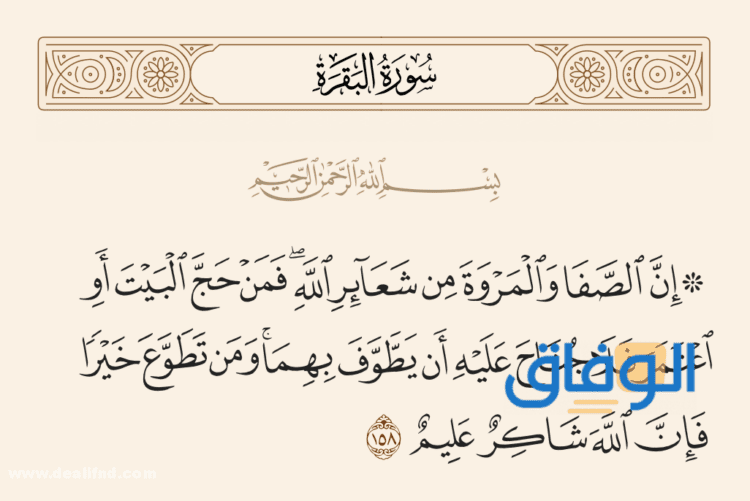 سُورَةُ البَقَرَةِ
بِسْمِ ٱللَّهِ ٱلرَّحْمَٰنِ ٱلرَّحِيمِ
۞ إِنَّ ٱلصَّفَا وَٱلْمَرْوَةَ مِن شَعَآئِرِ ٱللَّهِۖ فَمَنْ حَجَّ ٱلْبَيْتَ أَوِ
ٱعْتَمَرَ فَلَا جُنَاحَ عَلَيْهِ أَن يَطَّوَّفَ بِهِمَاۚ وَمَن تَطَوَّعَ خَيْرًا
الوفاق
فَإِنَّ ٱللَّهَ شَاكِرٌ عَلِيمٌ ١٥٨